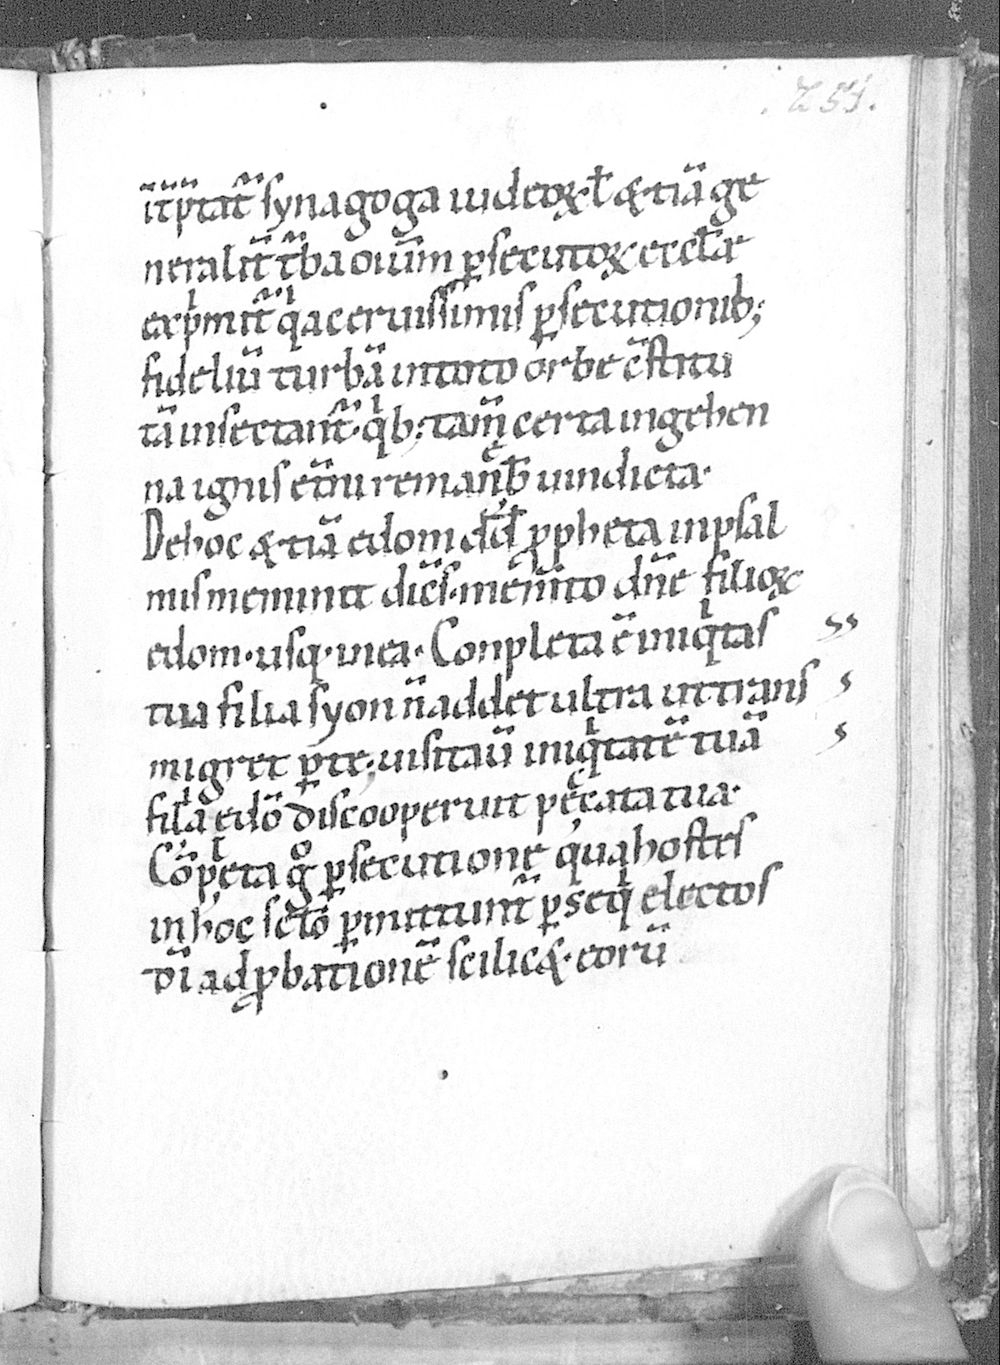 . 251.
ĩt̃p̃tat̃ synagoga iudeoꝝ·ł &·tiã ge
neralit̃ t̃ba oiũm ꝑsecutoꝝ ecclãe
exp̍mit̃ q̍ acervissimis ꝑsecutionib;
fideliũ turbã intoto orbe c̃stitu
tã insectant̃·q̍b; tam̃ certa ingehen
na ignis et̃ni remaneb̃ uindicta·
Dehoc &·tiã edom dd̃ ꝓpheta inpsal
mis meminit dic̃s·mem̃to dñe filioꝝ
edom·usq·inea· Conpleta ẽ iniq̍tas
tua filia syon ñ addet ultra uttrans
migret ꝑte; uisitaũ iniq̍tatẽ tuã
filia edõ discooperuit peccata tua·
Cõpleta gͦ ꝑsecutione qua hostes
in hoc sclõ ꝑmittunt̃ ꝑseq̍ electos
dĩ ad ꝓbationẽ scilic&·eorũ